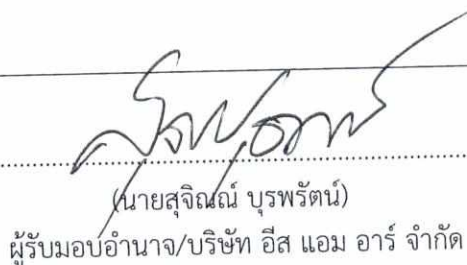 (นายสุจิณณ์ บุรพรัตน์)
ผู้รับมอบอำนาจ/บริษัท อีส แอม อาร์ จำกัด